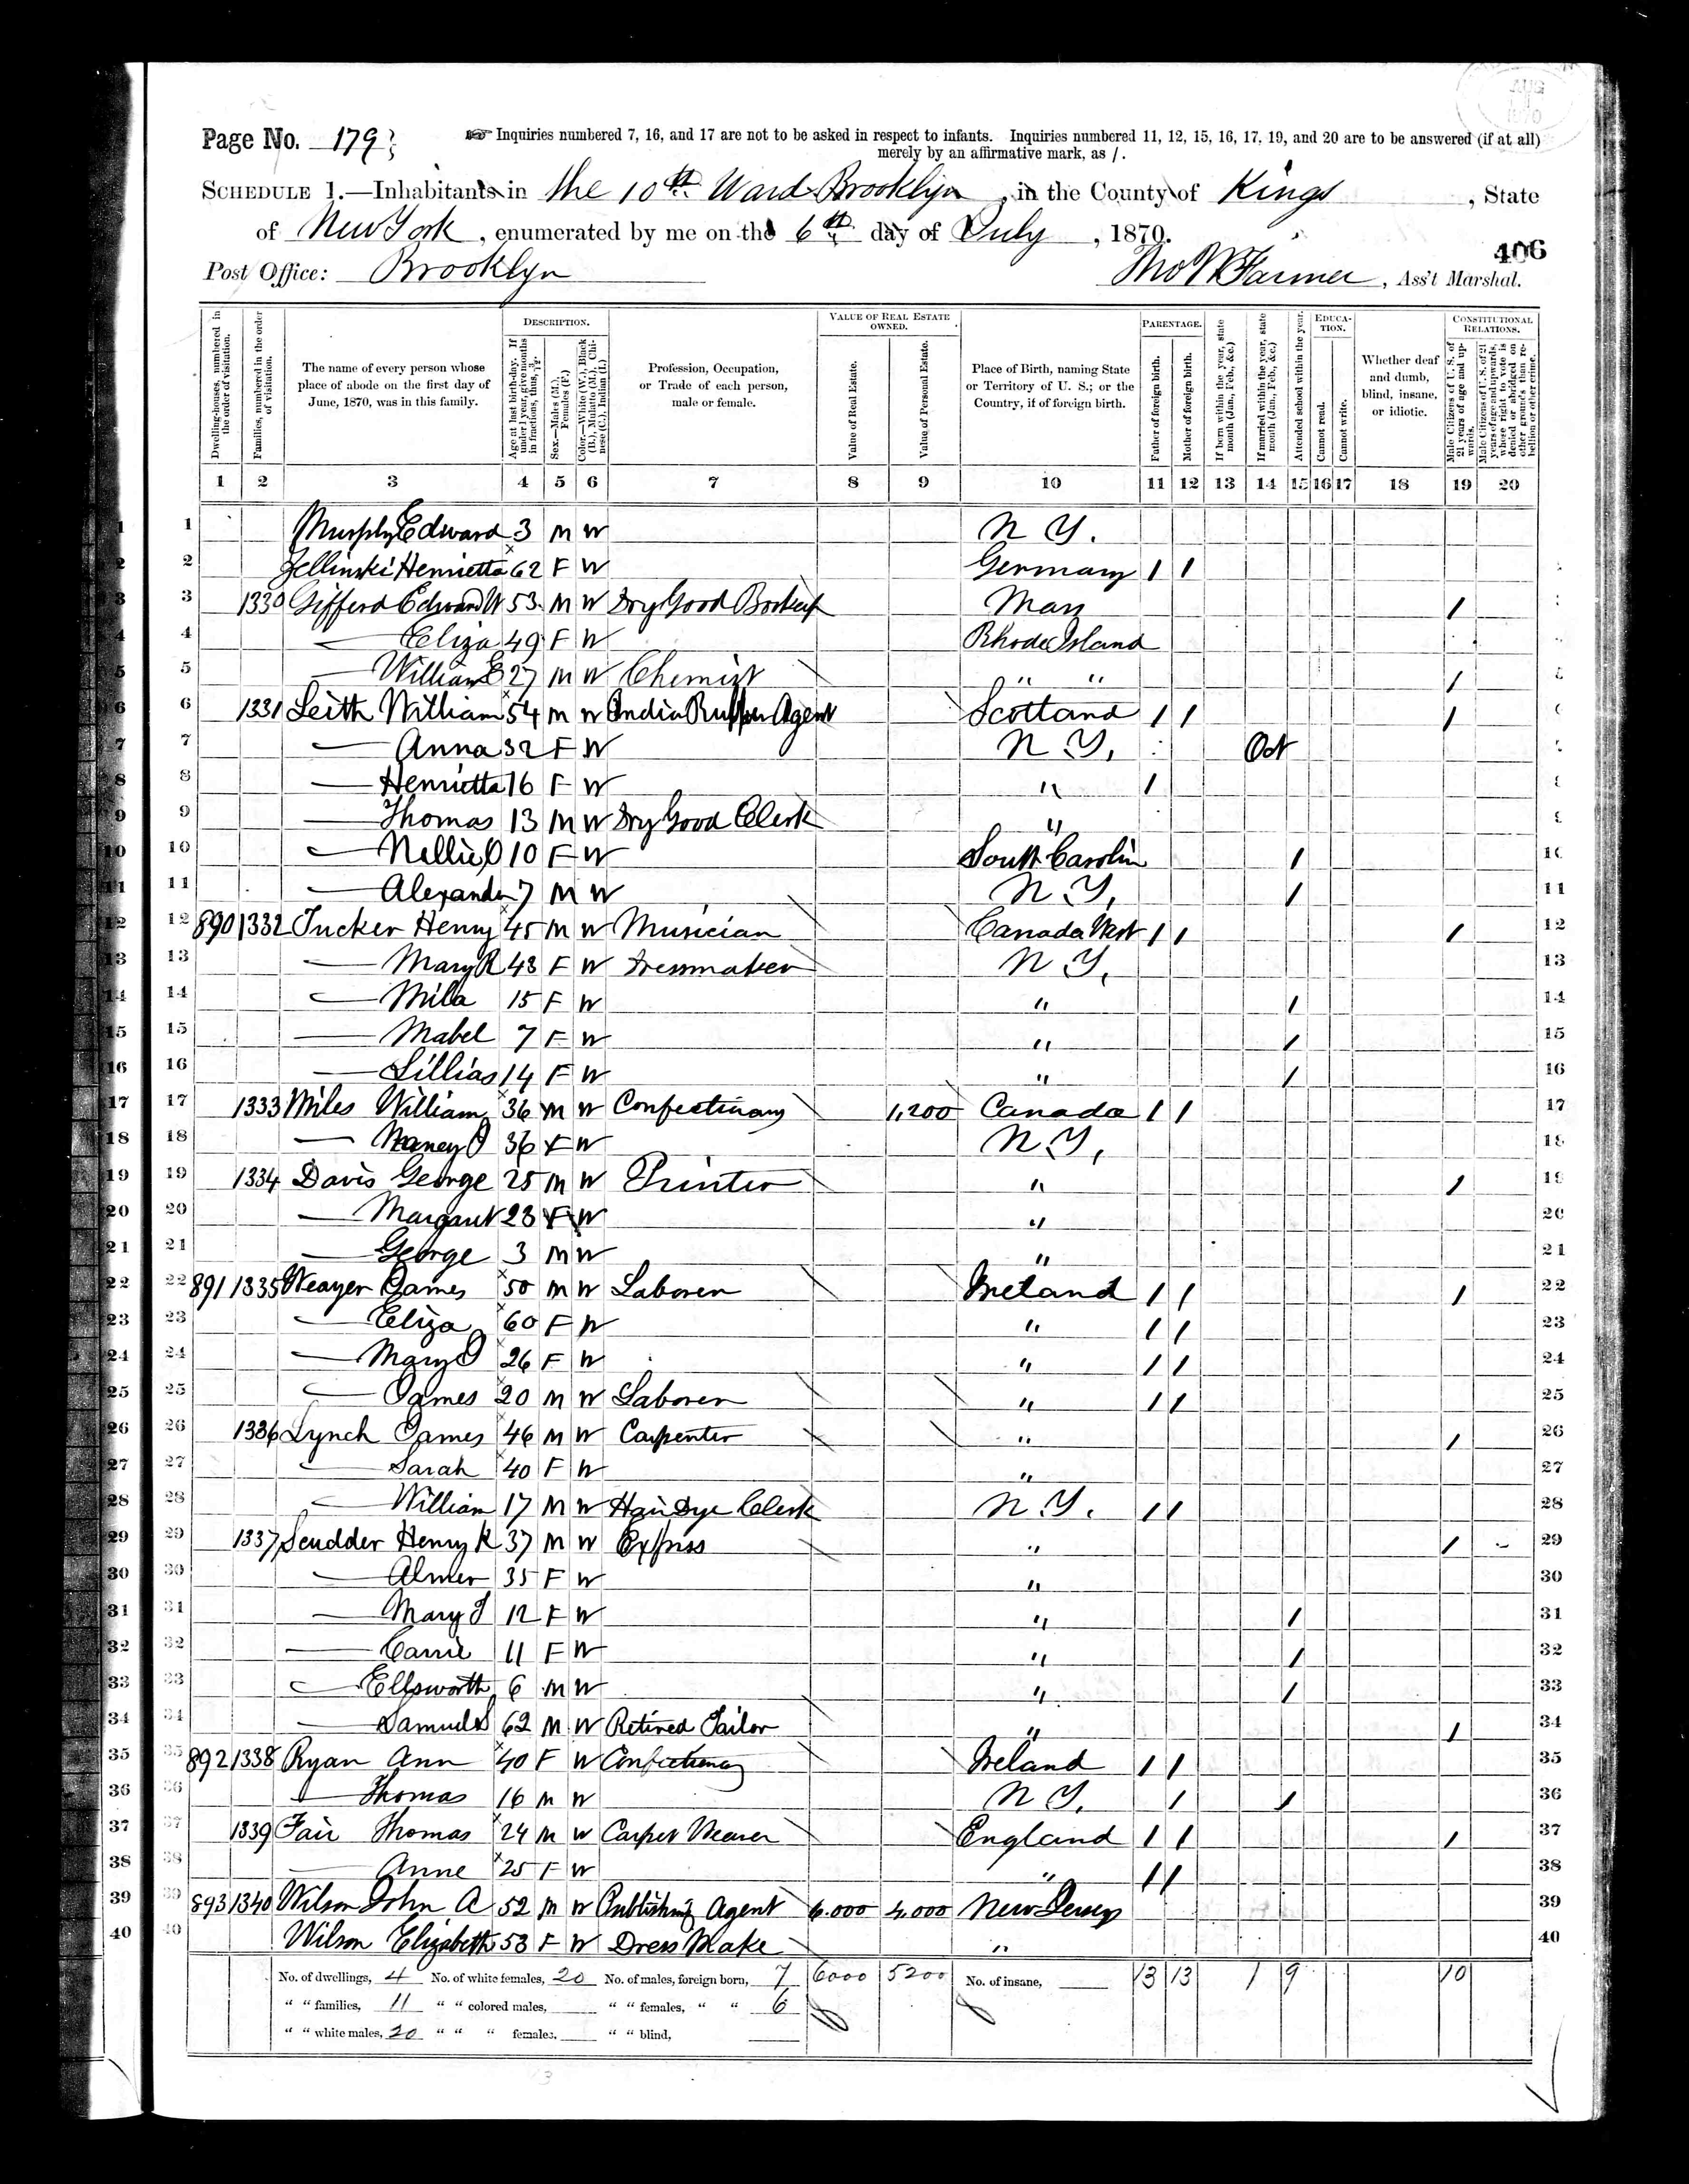 AUG 1 1870
Page No. 179
Inquiries numbered 7, 16, and 17 are not to be asked in respect to infants. Inquiries numbered 11, 12, 15, 16, 17, 19, and 20 are to be answered (if at all)
merely by an affirmative mark, as /.
SCHEDULE 1.—Inhabitants in the 10th Ward Brooklyn, in the County of Kings, State
of New York, enumerated by me on the 6th day of July, 1870.
406
Post Office: Brooklyn Farmer, Ass't Marshal.
DESCRIPTION. VALUE OF REAL ESTATE OWNED. PARENTAGE. EDUCATION. CONSTITUTIONAL RELATIONS.
Dwelling-houses, numbered in the order of visitation.
Families, numbered in the order of visitation.
The name of every person whose place of abode on the first day of June, 1870, was in this family.
Age at last birth-day. If under 1 year, give months in fractions, thus, 3/12.
Sex.—Males (M.), Females (F.)
Color.—White (W.), Black (B.), Mulatto (M.), Chinese (C.), Indian (I.)
Profession, Occupation, or Trade of each person, male or female.
Value of Real Estate.
Value of Personal Estate.
Place of Birth, naming State or Territory of U. S.; or the Country, if of foreign birth.
Father of foreign birth.
Mother of foreign birth.
If born within the year, state month (Jan., Feb., &c.)
If married within the year, state month (Jan., Feb., &c.)
Attended school within the year.
Cannot read.
Cannot write.
Whether deaf and dumb, blind, insane, or idiotic.
Male Citizens of U. S. of 21 years of age and upwards.
Male Citizens of U. S. of 21 years of age and upwards, whose right to vote is denied or abridged on other grounds than rebellion or other crime.
1 2 3 4 5 6 7 8 9 10 11 12 13 14 15 16 17 18 19 20
1 Murphy Edward 3 M W N Y. 1
2 Zellinski Henrietta 62 F W Germany / / 2
3 1330 Gifford Edward W 53 M W Dry Good Mass / 3
4 — Eliza 49 F W Rhode Island 4
5 — William E 27 M W Chemist " " / 5
6 1331 Leith William 54 M W India Rubber Agent Scotland / / / 6
7 — Anna 32 F W N Y. Oct 7
8 — Henrietta 16 F W " / 8
9 — Thomas 13 M W Dry Good Clerk " 9
10 — Nellie 10 F W South Carolin / 10
11 — Alexander 7 M W N Y. / 11
12 890 1332 Tucker Henry 45 M W Musician Canada West / / / 12
13 — Mary R 43 F W Dressmaker N Y. 13
14 — Mila 15 F W " / 14
15 — Mabel 7 F W " / 15
16 — Lillias 14 F W " / 16
17 1333 Miles William 36 M W Confectionary 1,200 Canada / / 17
18 — Nancy J 36 F W N Y. 18
19 1334 Davis George 25 M W Printer " / 19
20 — Margaret 23 F W " 20
21 — George 3 M W " 21
22 891 1335 Weaver James 50 M W Laborer Ireland / / / 22
23 — Eliza 60 F W " / / 23
24 — Mary J 26 F W " / / 24
25 — James 20 M W Laborer " / / 25
26 1336 Lynch James 46 M W Carpenter " / 26
27 — Sarah 40 F W " 27
28 — William 17 M W Hair Dye Clerk N Y. / / 28
29 1337 Scudder Henry R 37 M W Express " / 29
30 — Almer 35 F W " 30
31 — Mary J 12 F W " / 31
32 — Carrie 11 F W " / 32
33 — Ellsworth 6 M W " / 33
34 — Samuel S 62 M W Retired Tailor " / 34
35 892 1338 Ryan Ann 40 F W Confectionary Ireland / / 35
36 — Thomas 16 M W N Y. / / 36
37 1339 Fair Thomas 24 M W Carpet Weaver England / / / 37
38 — Anne 25 F W " / / 38
39 893 1340 Wilson John A 52 M W Publishing Agent 6.000 4.000 New Jersey 39
40 Wilson Elizabeth 53 F W Dress Make " 40
No. of dwellings, 4 No. of white females, 20 No. of males, foreign born, 7 6000 5200 No. of insane, 13 13 1 9 10
" " families, 11 " " colored males, " " females, " " 6
" " white males, 20 " " " females, " " blind,